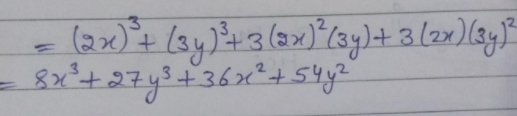 = (2x)³ + (3y)³ + 3(2x)²(3y) + 3(2x)(3y)²
= 8x³ + 27y³ + 36x² + 54y²